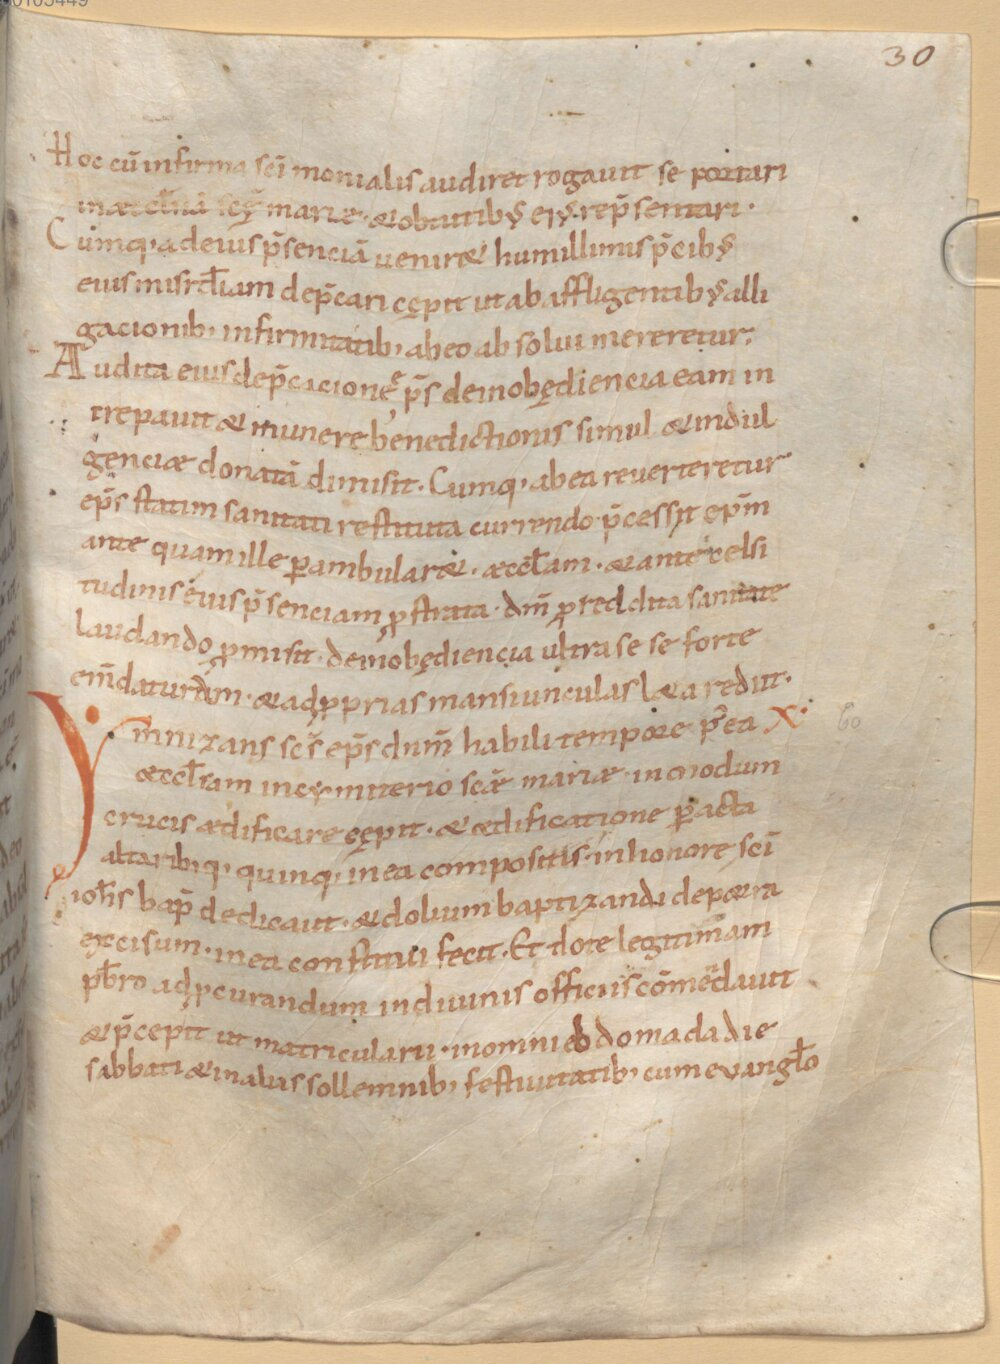 30
Hoc cū infirma sc̄i monialis audiret rogauit se portari
in æccl̄iā sc̄ę mariæ · & obtutibꝰ eiꝰ rep̄sentari ·
Cumq; ad eius p̄senciā uenir& humillimis p̄cibꝰ
eius misrd̄iam dep̄cari cępit ut ab affligentibꝰ alli
gacionib; infirmitatib; ab eo absolui mereretur;
Audita eius dep̄cacione ep̄s de inobędiencia eam in
trepauit & munere benedictionis simul & indul
genciæ donatā dimisit. Cumq; ab ea reuerteretur
ep̄s statim sanitati restituta currendo p̄cessit ep̄m
ante quam ille ꝑambular& · æccl̄am · & ante celsi
tudinis eius p̄senciam ꝓstrata · dm̄ ꝓ reddita sanitate
laudando ꝓmisit · de inobędiencia ultra se se forte
em̄daturam · & ad ꝓprias mansiunculas l&a rediit ·
Ymnizans sc̄s ep̄s dnm̄ habili tempore p̄ea X·
æccl̄iam in cymiterio sc̄æ mariæ · in modum
crucis ædificare cępit · & ædificatione ꝑacta
altaribusq; quinq; in ea compositis · in honore sc̄i
ioh̄is bap̄ dedicauit · & dolium baptizandi de p&ra
excisum · in ea constitui fecit · Et dote legitimam
pb̄ro ad ꝓcurandum in diuinis officiis cōmēdauit
& p̄cepit ut matricularii · in omni ebdomada die
sabbati & in aliis sollemnib; festiuitatib; cum evangl̄o
60